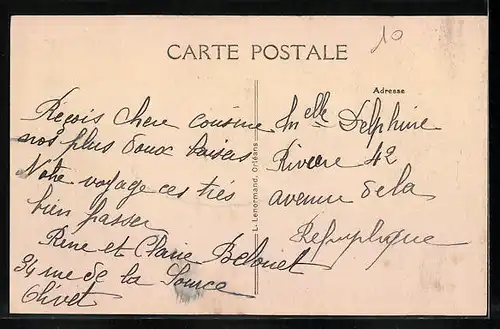 10
CARTE POSTALE
Adresse
Reçois chere cousine
nos plus doux baisers
Notre voyage ces très
bien passer
Rene et Claire Belouet
34 rue de la Source
Olivet
L. Lenormand, Orléans
Melle Delphine
Riviere 42
avenue de la
République